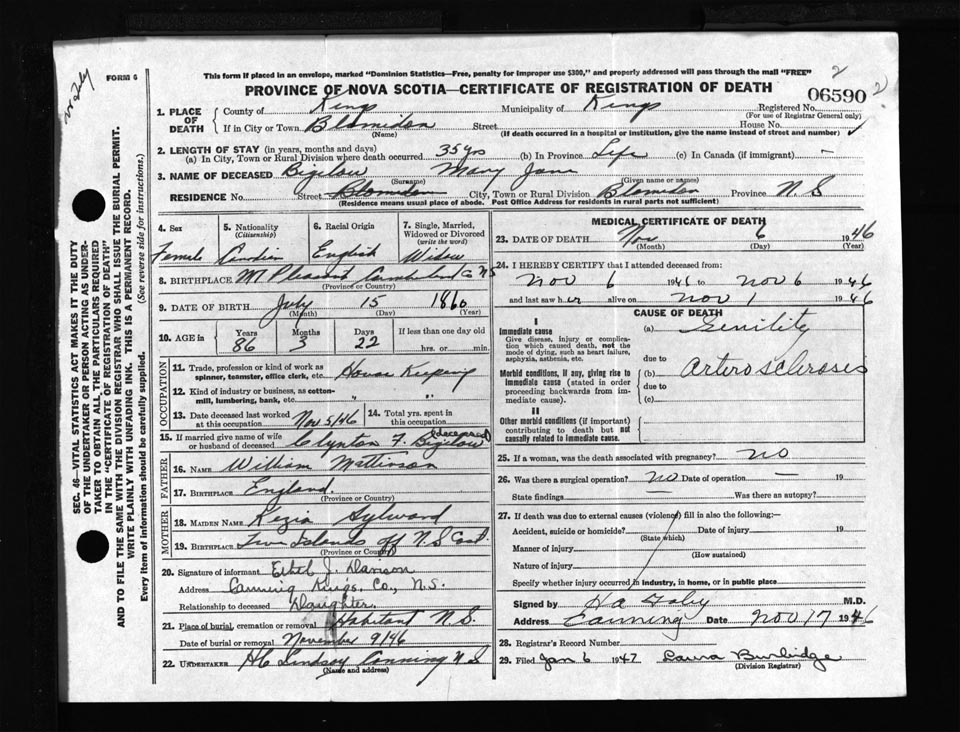 FORM 6
This form if placed in an envelope, marked "Dominion Statistics—Free, penalty for improper use $300," and properly addressed will pass through the mail "FREE"
2
PROVINCE OF NOVA SCOTIA—CERTIFICATE OF REGISTRATION OF DEATH
06590
2
1. PLACE OF DEATH
County of Kings Municipality of Kings Registered No.
(For use of Registrar General only)
If in City or Town Blomidon Street House No.
(Name) (If death occurred in a hospital or institution, give the name instead of street and number)
2. LENGTH OF STAY (in years, months and days)
(a) In City, Town or Rural Division where death occurred 35 yrs (b) In Province Life (c) In Canada (if immigrant) -
3. NAME OF DECEASED Bigelow Mary Jane
(Surname) (Given name or names)
RESIDENCE No. Street Blomidon City, Town or Rural Division Blomidon Province N.S
(Residence means usual place of abode. Post Office Address for residents in rural parts not sufficient)
4. Sex
Female
5. Nationality
(Citizenship)
Candien
6. Racial Origin
English
7. Single, Married, Widowed or Divorced
(write the word)
Widow
8. BIRTHPLACE Mt Pleasant Cumberland Co NS
(Province or Country)
9. DATE OF BIRTH July 15 1860
(Month) (Day) (Year)
10. AGE in
Years Months Days If less than one day old
86 3 22 hrs. or min.
OCCUPATION
11. Trade, profession or kind of work as spinner, teamster, office clerk, etc. House Keeping
12. Kind of industry or business, as cotton-mill, lumbering, bank, etc. " "
13. Date deceased last worked at this occupation Nov 5/46
14. Total yrs. spent in this occupation
15. If married give name of wife or husband of deceased Clynton F. Bigelow (deceased)
FATHER
16. NAME William Mattinson
17. BIRTHPLACE England.
(Province or Country)
MOTHER
18. MAIDEN NAME Kezia Sylward
19. BIRTHPLACE Two Islands off N.S Coast.
(Province or Country)
20. Signature of informant Ethel J. Davison
Address Canning Kings, Co., N.S.
Relationship to deceased Daughter.
21. Place of burial, cremation or removal Habitant N.S.
Date of burial or removal November 9/46
22. UNDERTAKER HC Lindsay Canning N.S
(Name and address)
MEDICAL CERTIFICATE OF DEATH
23. DATE OF DEATH Nov 6 1946
(Month) (Day) (Year)
24. I HEREBY CERTIFY that I attended deceased from:
Nov 6 1941 to Nov 6 1946
and last saw her alive on Nov 1 1946
CAUSE OF DEATH
I
Immediate cause
Give disease, injury or complication which caused death, not the mode of dying, such as heart failure, asphyxia, asthenia, etc.
(a) Senility
due to
Morbid conditions, if any, giving rise to immediate cause (stated in order proceeding backwards from immediate cause).
(b) Artero sclerosis
due to
(c)
II
Other morbid conditions (if important) contributing to death but not causally related to immediate cause.
25. If a woman, was the death associated with pregnancy? no
26. Was there a surgical operation? no Date of operation — 19
State findings — Was there an autopsy?
27. If death was due to external causes (violence) fill in also the following:—
Accident, suicide or homicide? Date of injury 19
(State which)
Manner of injury
(How sustained)
Nature of injury
Specify whether injury occurred in industry, in home, or in public place
Signed by M.D.
Address Canning Date Nov 17 1946
28. Registrar's Record Number
29. Filed Jan 6 1947 Laura Burbidge
(Division Registrar)
SEC. 46—VITAL STATISTICS ACT MAKES IT THE DUTY
OF THE UNDERTAKER OR PERSON ACTING AS UNDER-
TAKER TO OBTAIN ALL THE PARTICULARS REQUIRED
IN THE "CERTIFICATE OF REGISTRATION OF DEATH"
AND TO FILE THE SAME WITH THE DIVISION REGISTRAR WHO SHALL ISSUE THE BURIAL PERMIT.
WRITE PLAINLY WITH UNFADING INK. THIS IS A PERMANENT RECORD.
Every item of information should be carefully supplied. (See reverse side for instructions.)